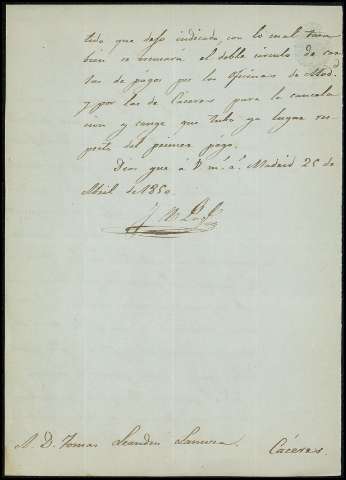 tado que dejo indicado con lo cual tam-
bien se evitará el doble círculo de car-
tas de pagos por las Oficinas de Mad.
y por las de Cáceres para la cancela-
cion y cange que tubo ya lugar res-
pecto del primer pago.
Dios gue á V. m.s a.s Madrid 25 de
Abril de 1850.
S. D. Tomas Leandro
Cáceres.